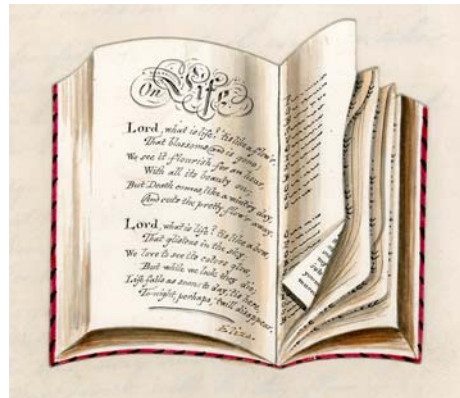 On Life.
Lord, what is life? 'tis like a flow'r,
That blossoms, and is gone;
We see it flourish for an hour,
With all its beauty on;
But Death comes, like a wintry day,
And cuts the pretty flow'r away.
Lord, what is life? 'tis like a bow,
That glistens in the sky;
We love to see its colors glow,
But while we look they die;
Life fails as soon; to day, 'tis here,
To-night, perhaps, 'twill disappear.
Eliza.